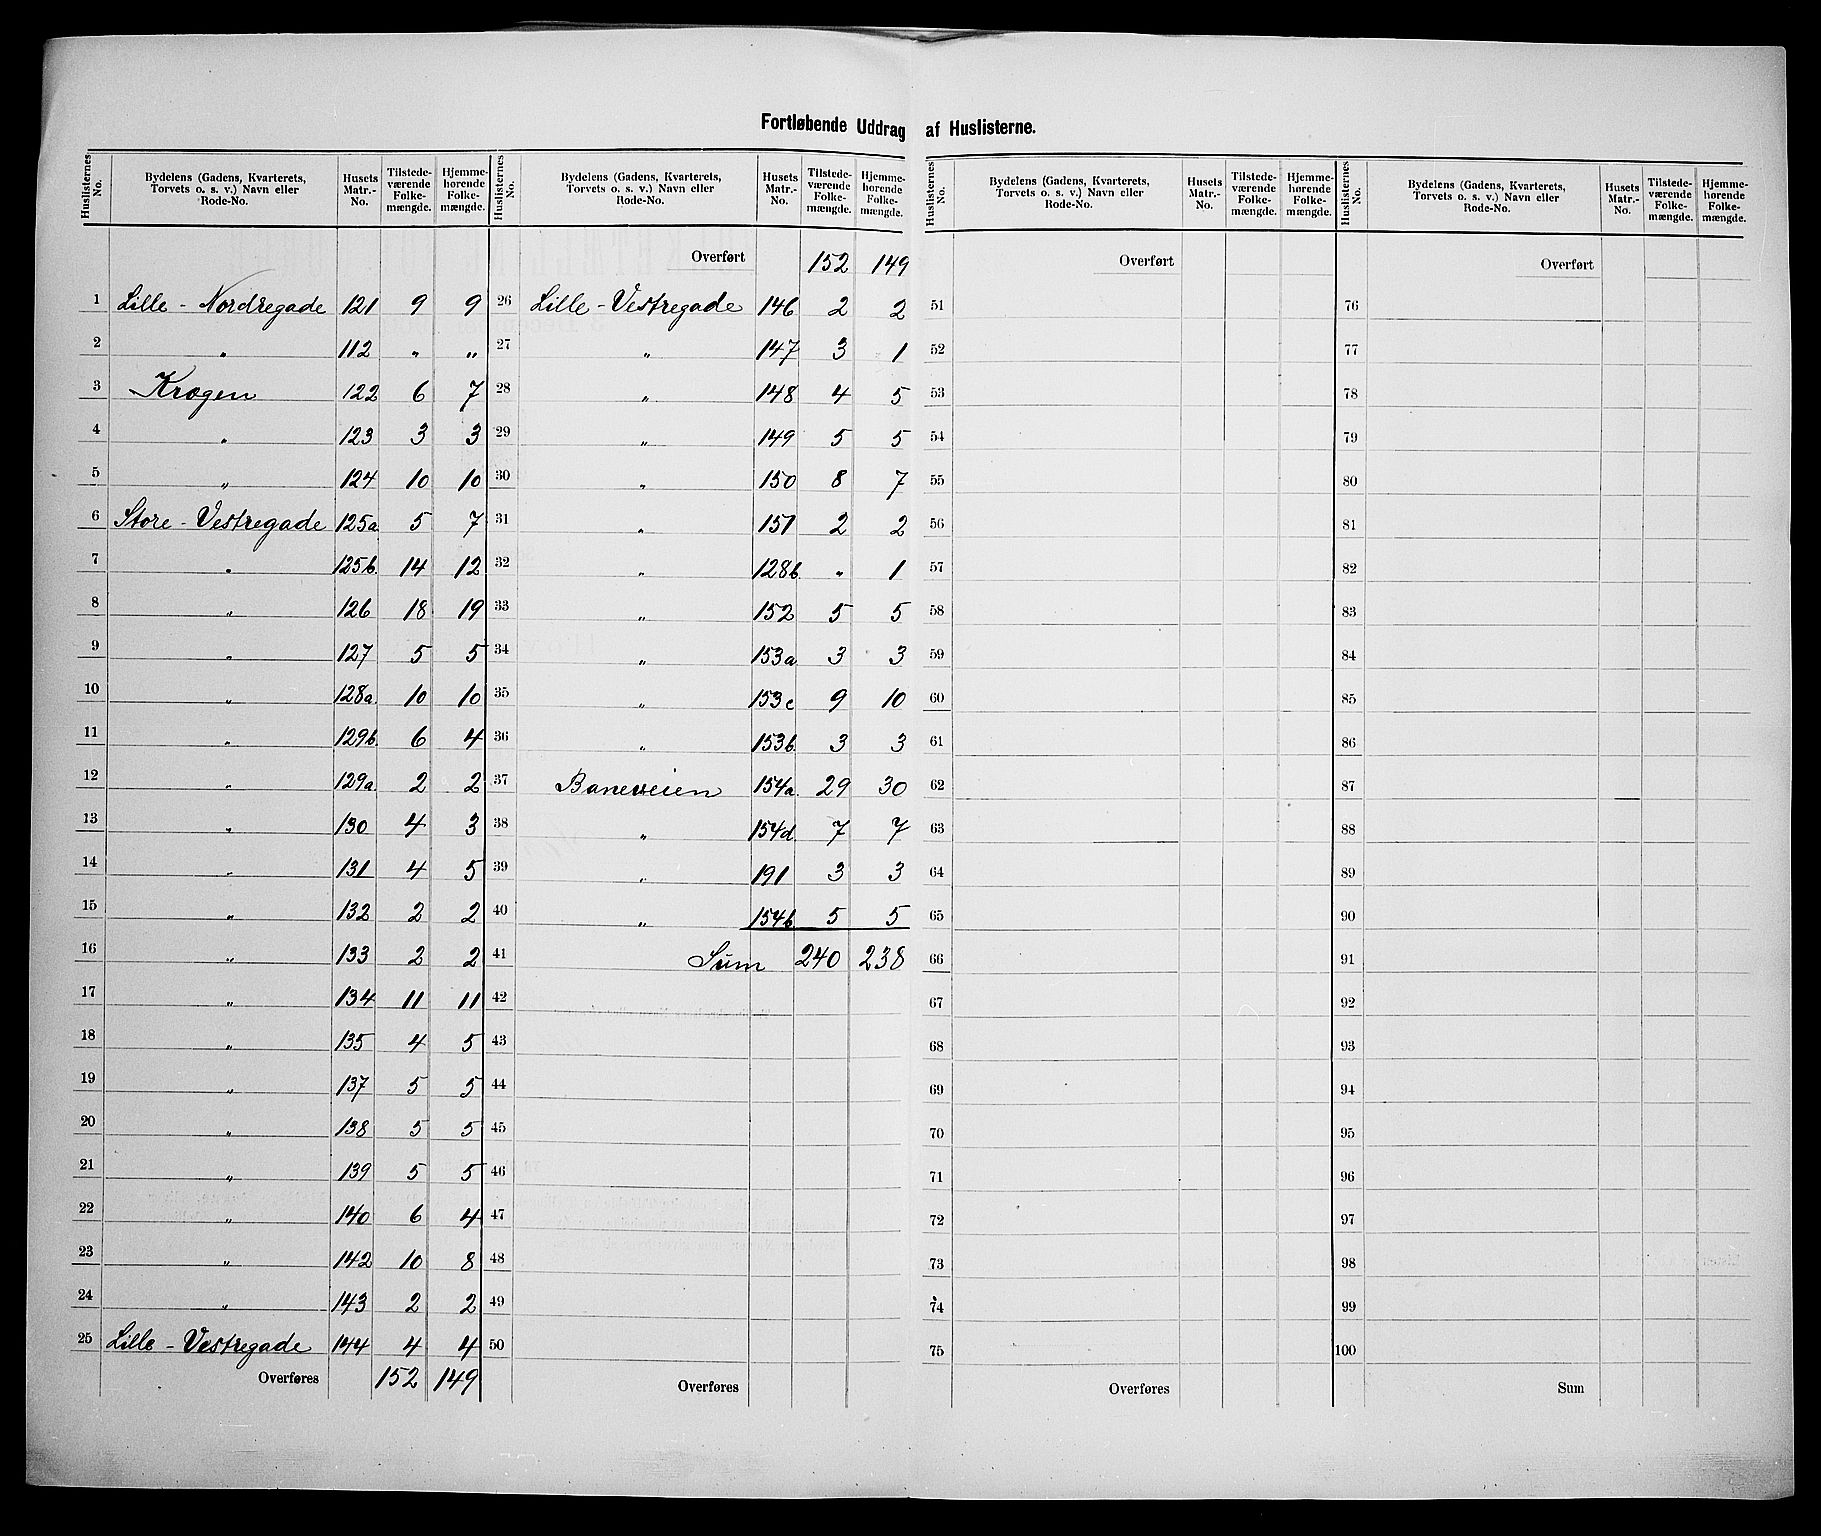 Fortløbende Uddrag af Huslisterne.
Huslisternes No. | Bydelens (Gadens, Kvarterets, Torvets o. s. v.) Navn eller Rode-No. | Husets Matr.-No. | Tilstedeværende Folkemængde. | Hjemmehorende Folkemængde.
1 Lille - Nordregade 121 9 9
2 " 112 " "
3 Krogen 122 6 7
4 " 123 3 3
5 " 124 10 10
6 Store - Vestregade 125a 5 7
7 " 125b. 14 12
8 " 126 18 19
9 " 127 5 5
10 " 128a. 10 10
11 " 129b. 6 4
12 " 129a. 2 2
13 " 130 4 3
14 " 131 4 5
15 " 132 2 2
16 " 133 2 2
17 " 134 11 11
18 " 135 4 5
19 " 137 5 5
20 " 138 5 5
21 " 139 5 5
22 " 140 6 4
23 " 142 10 8
24 " 143 2 2
25 Lille - Vestregade 144 4 4
Overføres 152 149
Huslisternes No. | Bydelens (Gadens, Kvarterets, Torvets o. s. v.) Navn eller Rode-No. | Husets Matr.-No. | Tilstedeværende Folkemængde. | Hjemmehorende Folkemængde.
Overført 152 149
26 Lille - Vestregade 146 2 2
27 " 147 3 1
28 " 148 4 5
29 " 149 5 5
30 " 150 8 7
31 " 151 2 2
32 " 128b. " 1
33 " 152 5 5
34 " 153a 3 3
35 " 153c 9 10
36 " 153b. 3 3
37 Baneveien 154a. 29 30
38 " 154d. 7 7
39 " 191 3 3
40 " 154b. 5 5
41 Sum 240 238
42
43
44
45
46
47
48
49
50
Overføres
Huslisternes No. | Bydelens (Gadens, Kvarterets, Torvets o. s. v.) Navn eller Rode-No. | Husets Matr.-No. | Tilstedeværende Folkemængde. | Hjemmehorende Folkemængde.
Overført
51
52
53
54
55
56
57
58
59
60
61
62
63
64
65
66
67
68
69
70
71
72
73
74
75
Overføres
Huslisternes No. | Bydelens (Gadens, Kvarterets, Torvets o. s. v.) Navn eller Rode-No. | Husets Matr.-No. | Tilstedeværende Folkemængde. | Hjemmehorende Folkemængde.
Overført
76
77
78
79
80
81
82
83
84
85
86
87
88
89
90
91
92
93
94
95
96
97
98
99
100
Sum